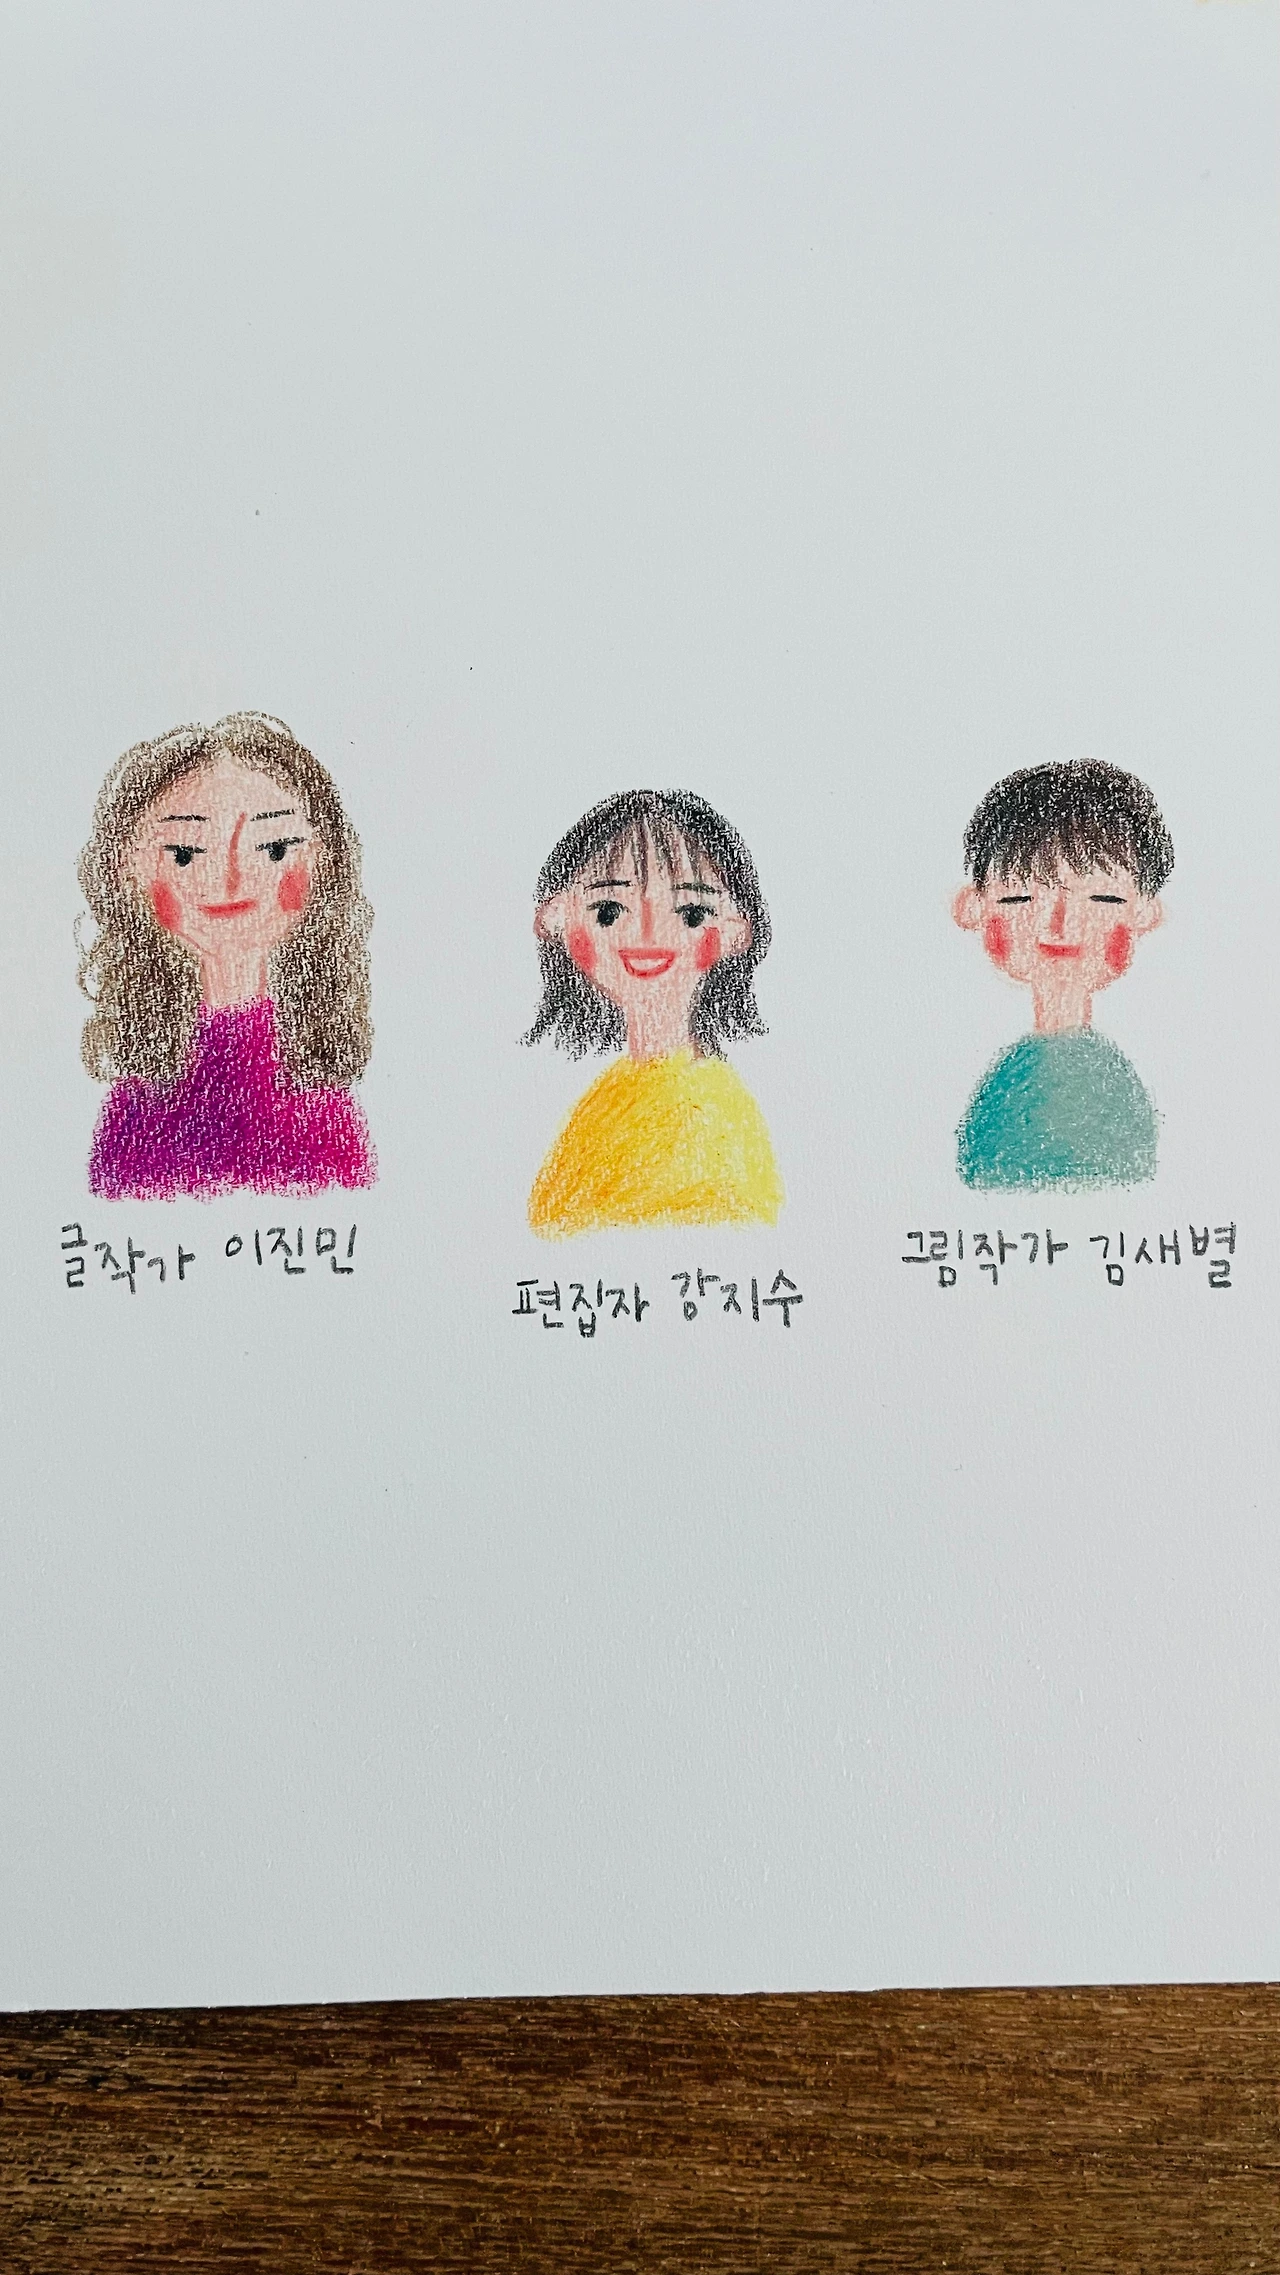 글작가 이진민
편집자 강지수
그림작가 김새별